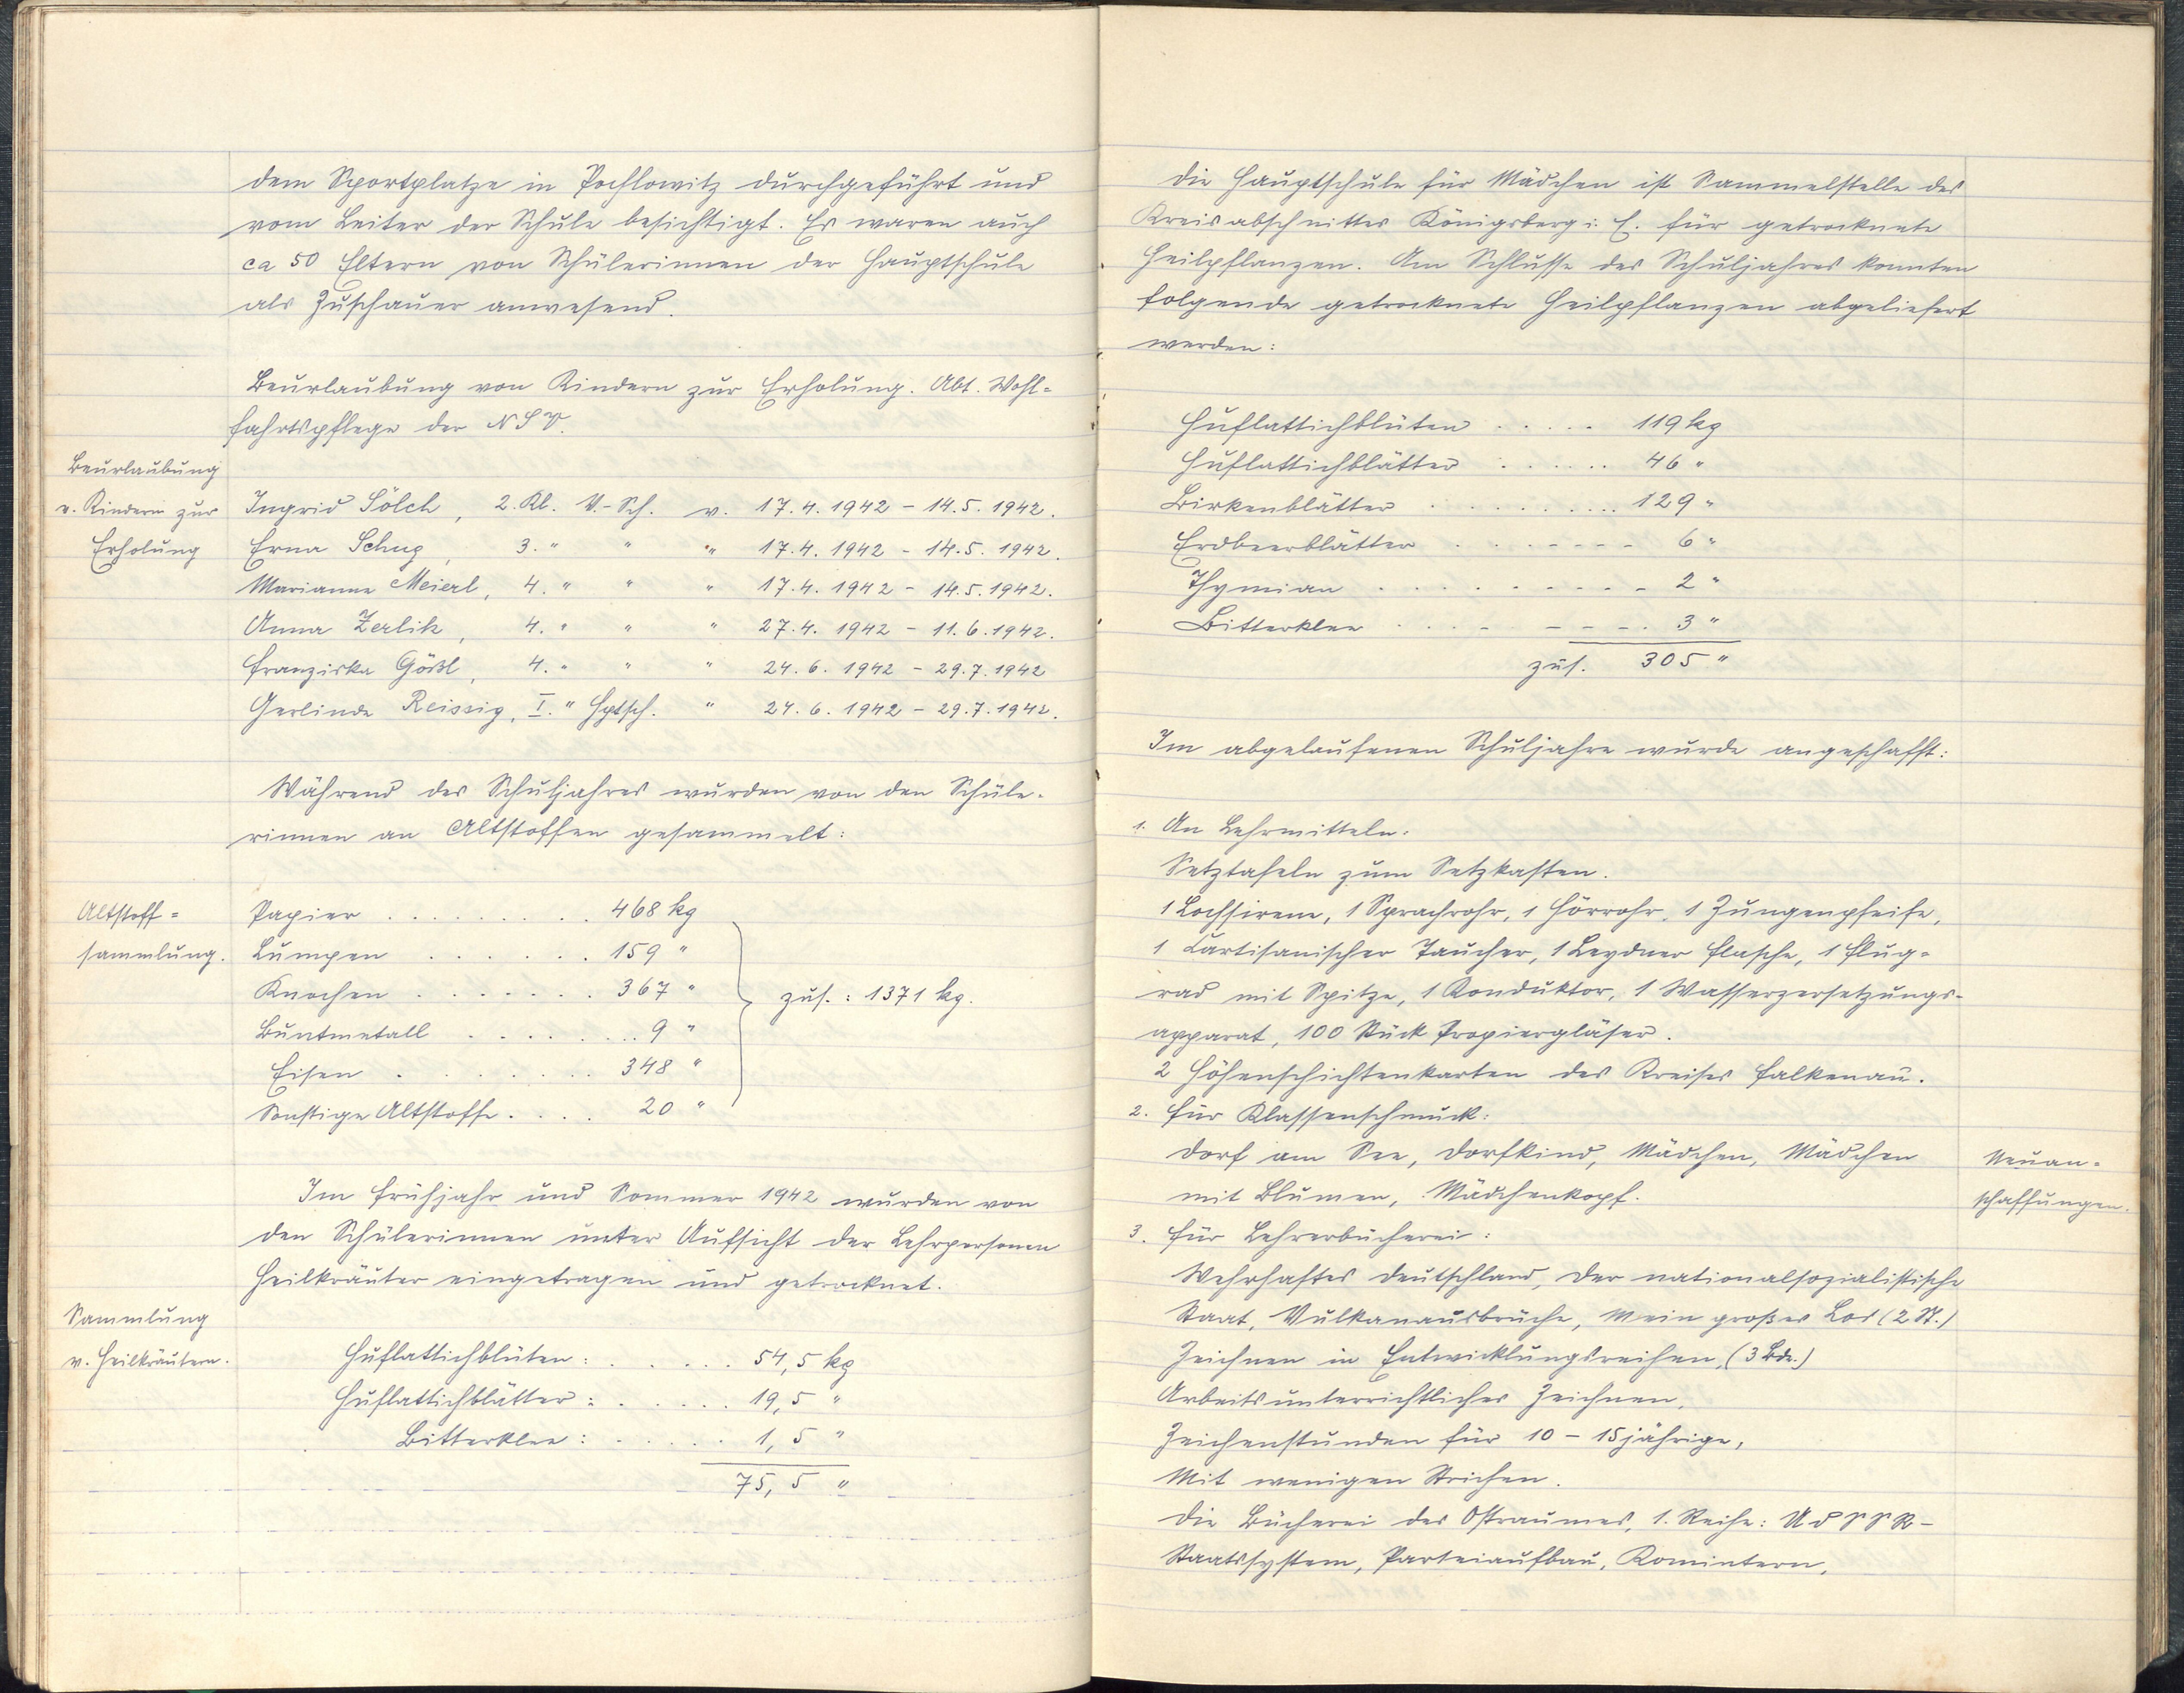 dem Sportplatze in Pochlowitz durchgeführt und
vom Leiter der Schule besichtigt. Es waren auch
ca 50 Eltern von Schülerinnen der Hauptschule
als Zuschauer anwesend.
Beurlaubung von Kindern zur Erholung. Abt. Wohl=
fahrtspflege der NSV.
Beurlaubung
v. Kindern zur
Erholung
Ingrid Sölch, 2. Kl. V.-Sch. v. 17.4.1942 - 14.5.1942.
Erna Schug, 3. " " " 17.4.1942 - 14.5.1942.
Marianne Meierl, 4. " " " 17.4.1942 - 14.5.1942.
Anna Zerlik, 4. " " " 27.4.1942 - 11.6.1942.
Franziska Gößl, 4. " " " 24.6.1942 - 29.7.1942
Gerlinde Reissig, I. " Hptsch. " 24.6.1942 - 29.7.1942.
Während des Schuljahres wurden von den Schüle-
rinnen an Altstoffen gesammelt:
Altstoff=
sammlung.
Papier . . . . . . . . . 468 kg
Lumpen . . . . . . . 159 "
Knochen . . . . . . . 367 " zus.: 1371 kg.
Buntmetall . . . . . . . 9 "
Eisen . . . . . . . 348 "
Sonstige Altstoffe . . . . 20 "
Im Frühjahr und Sommer 1942 wurden von
den Schülerinnen unter Aufsicht der Lehrpersonen
Heilkräuter eingetragen und getrocknet.
Sammlung
v. Heilkräutern.
Huflattichblüten: . . . . . 54,5 kg
Huflattichblätter: . . . . . 19,5 "
Bitterklee: . . . . . 1,5 "
75,5 "
Die Hauptschule für Mädchen ist Sammelstelle des
Kreisabschnittes Königsberg i. E. für getrocknete
Heilpflanzen. Am Schlusse des Schuljahres konnten
folgende getrocknete Heilpflanzen abgeliefert
werden:
Huflattichblüten . . . . . 119 kg
Huflattichblätter . . . . . . 46 "
Birkenblätter . . . . . . . . . 129 "
Erdbeerblätter . . . . . . . 6 "
Thymian . . . . . . . . . . 2 "
Bitterklee . . . . . . . . 3 "
zus. 305 "
Im abgelaufenen Schuljahre wurde angeschafft:
1. An Lehrmitteln:
Setztafeln zum Setzkasten.
1 Lochsirene, 1 Sprachrohr, 1 Hörrohr, 1 Zungenpfeife,
1 Cartisanischer Taucher, 1 Leydner Flasche, 1 Flug=
rad mit Spitze, 1 Konduktor, 1 Wasserzersetzungs-
apparat, 100 Stück Propiergläser.
2 Höhenschichtenkarten des Kreises Falkenau.
2. Für Klassenschmuck:
Dorf am See, Dorfkind, Mädchen, Mädchen
mit Blumen, Mädchenkopf.
Neuan=
schaffungen.
3. Für Lehrerbücherei:
Wehrhaftes Deutschland, Der nationalsozialistische
Staat, Vulkanausbrüche, Mein großes Los (2 St.)
Zeichnen in Entwicklungsreihen, (3 Bde.)
Arbeitsunterrichtliches Zeichnen,
Zeichenstunden für 10 - 15jährige,
Mit wenigen Strichen.
Die Bücherei des Ostraumes, 1. Reihe: UdSSR-
Staatssystem, Parteiaufbau, Komintern,